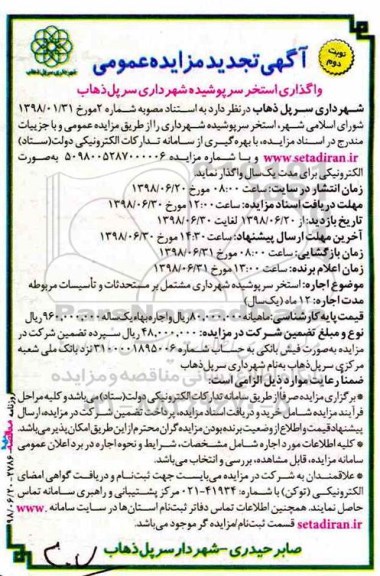 نوبت دوم
آگهی تجدید مزایده عمومی
شهرداری سرپل ذهاب
واگذاری استخر سرپوشیده شهرداری سرپل ذهاب
شهرداری سرپل ذهاب در نظر دارد به استناد مصوبه شماره ۲ مورخ ۱۳۹۸/۰۱/۳۱
شورای اسلامی شهر، استخر سرپوشیده شهرداری را از طریق مزایده عمومی و با جزییات
مندرج در اسناد مزایده، با بهره‌گیری از سامانه تدارکات الکترونیکی دولت(ستاد)
www.setadiran.ir و با شماره مزایده ۵۰۹۸۰۰۵۲۸۷۰۰۰۰۰۶ به‌صورت
الکترونیکی برای مدت یک‌سال واگذار نماید.
زمان انتشار در سایت: ساعت ۰۸:۰۰ مورخ ۱۳۹۸/۰۶/۲۰
مهلت دریافت اسناد مزایده: ساعت ۱۲:۰۰ مورخ ۱۳۹۸/۰۶/۳۰
تاریخ بازدید: از ۱۳۹۸/۰۶/۲۰ لغایت ۱۳۹۸/۰۶/۳۰
آخرین مهلت ارسال پیشنهاد: ساعت ۱۴:۳۰ مورخ ۱۳۹۸/۰۶/۳۰
زمان بازگشایی: ساعت ۰۸:۰۰ مورخ ۱۳۹۸/۰۶/۳۱
زمان اعلام برنده: ساعت ۱۳:۰۰ مورخ ۱۳۹۸/۰۶/۳۱
موضوع اجاره: استخر سرپوشیده شهرداری مشتمل بر مستحدثات و تأسیسات مربوطه
مدت اجاره: ۱۲ ماه (یک‌سال)
قیمت پایه کارشناسی: ماهیانه ۸۰،۰۰۰،۰۰۰ ریال و اجاره بهاء یکساله ۹۶۰،۰۰۰،۰۰۰ ریال
نوع و مبلغ تضمین شرکت در مزایده: ۴۸،۰۰۰،۰۰۰ ریال سپرده تضمین شرکت در
مزایده به‌صورت فیش بانکی به حساب شماره ۳۱۰۰۰۰۱۸۹۵۰۰۶ نزد بانک ملی شعبه
مرکزی سرپل‌ذهاب به‌نام شهرداری سرپل ذهاب
ضمنا رعایت موارد ذیل الزامی است:
* برگزاری مزایده صرفا از طریق سامانه تدارکات الکترونیکی دولت(ستاد) می‌باشد و کلیه مراحل
فرآیند مزایده شامل خرید و دریافت اسناد مزایده، پرداخت تضمین شرکت در مزایده، ارسال
پیشنهاد قیمت و اطلاع از وضعیت برنده بودن مزایده‌گران محترم از این طریق امکان‌پذیر می‌باشد.
* کلیه اطلاعات مورد اجاره شامل مشخصات، شرایط و نحوه اجاره در برد اعلان عمومی
سامانه مزایده، قابل مشاهده، بررسی و انتخاب می‌باشد.
* علاقمندان به شرکت در مزایده می‌بایست جهت ثبت‌نام و دریافت گواهی امضای
الکترونیکی (توکن) با شماره: ۴۱۹۳۴-۰۲۱ مرکز پشتیبانی و راهبری سامانه تماس
حاصل نمایند. همچنین اطلاعات تماس دفاتر ثبت‌نام استان‌ها در سایت سامانه www.
setadiran.ir قسمت ثبت‌نام/مزایده گر موجود می‌باشد.
صابر حیدری – شهردار سرپل ذهاب